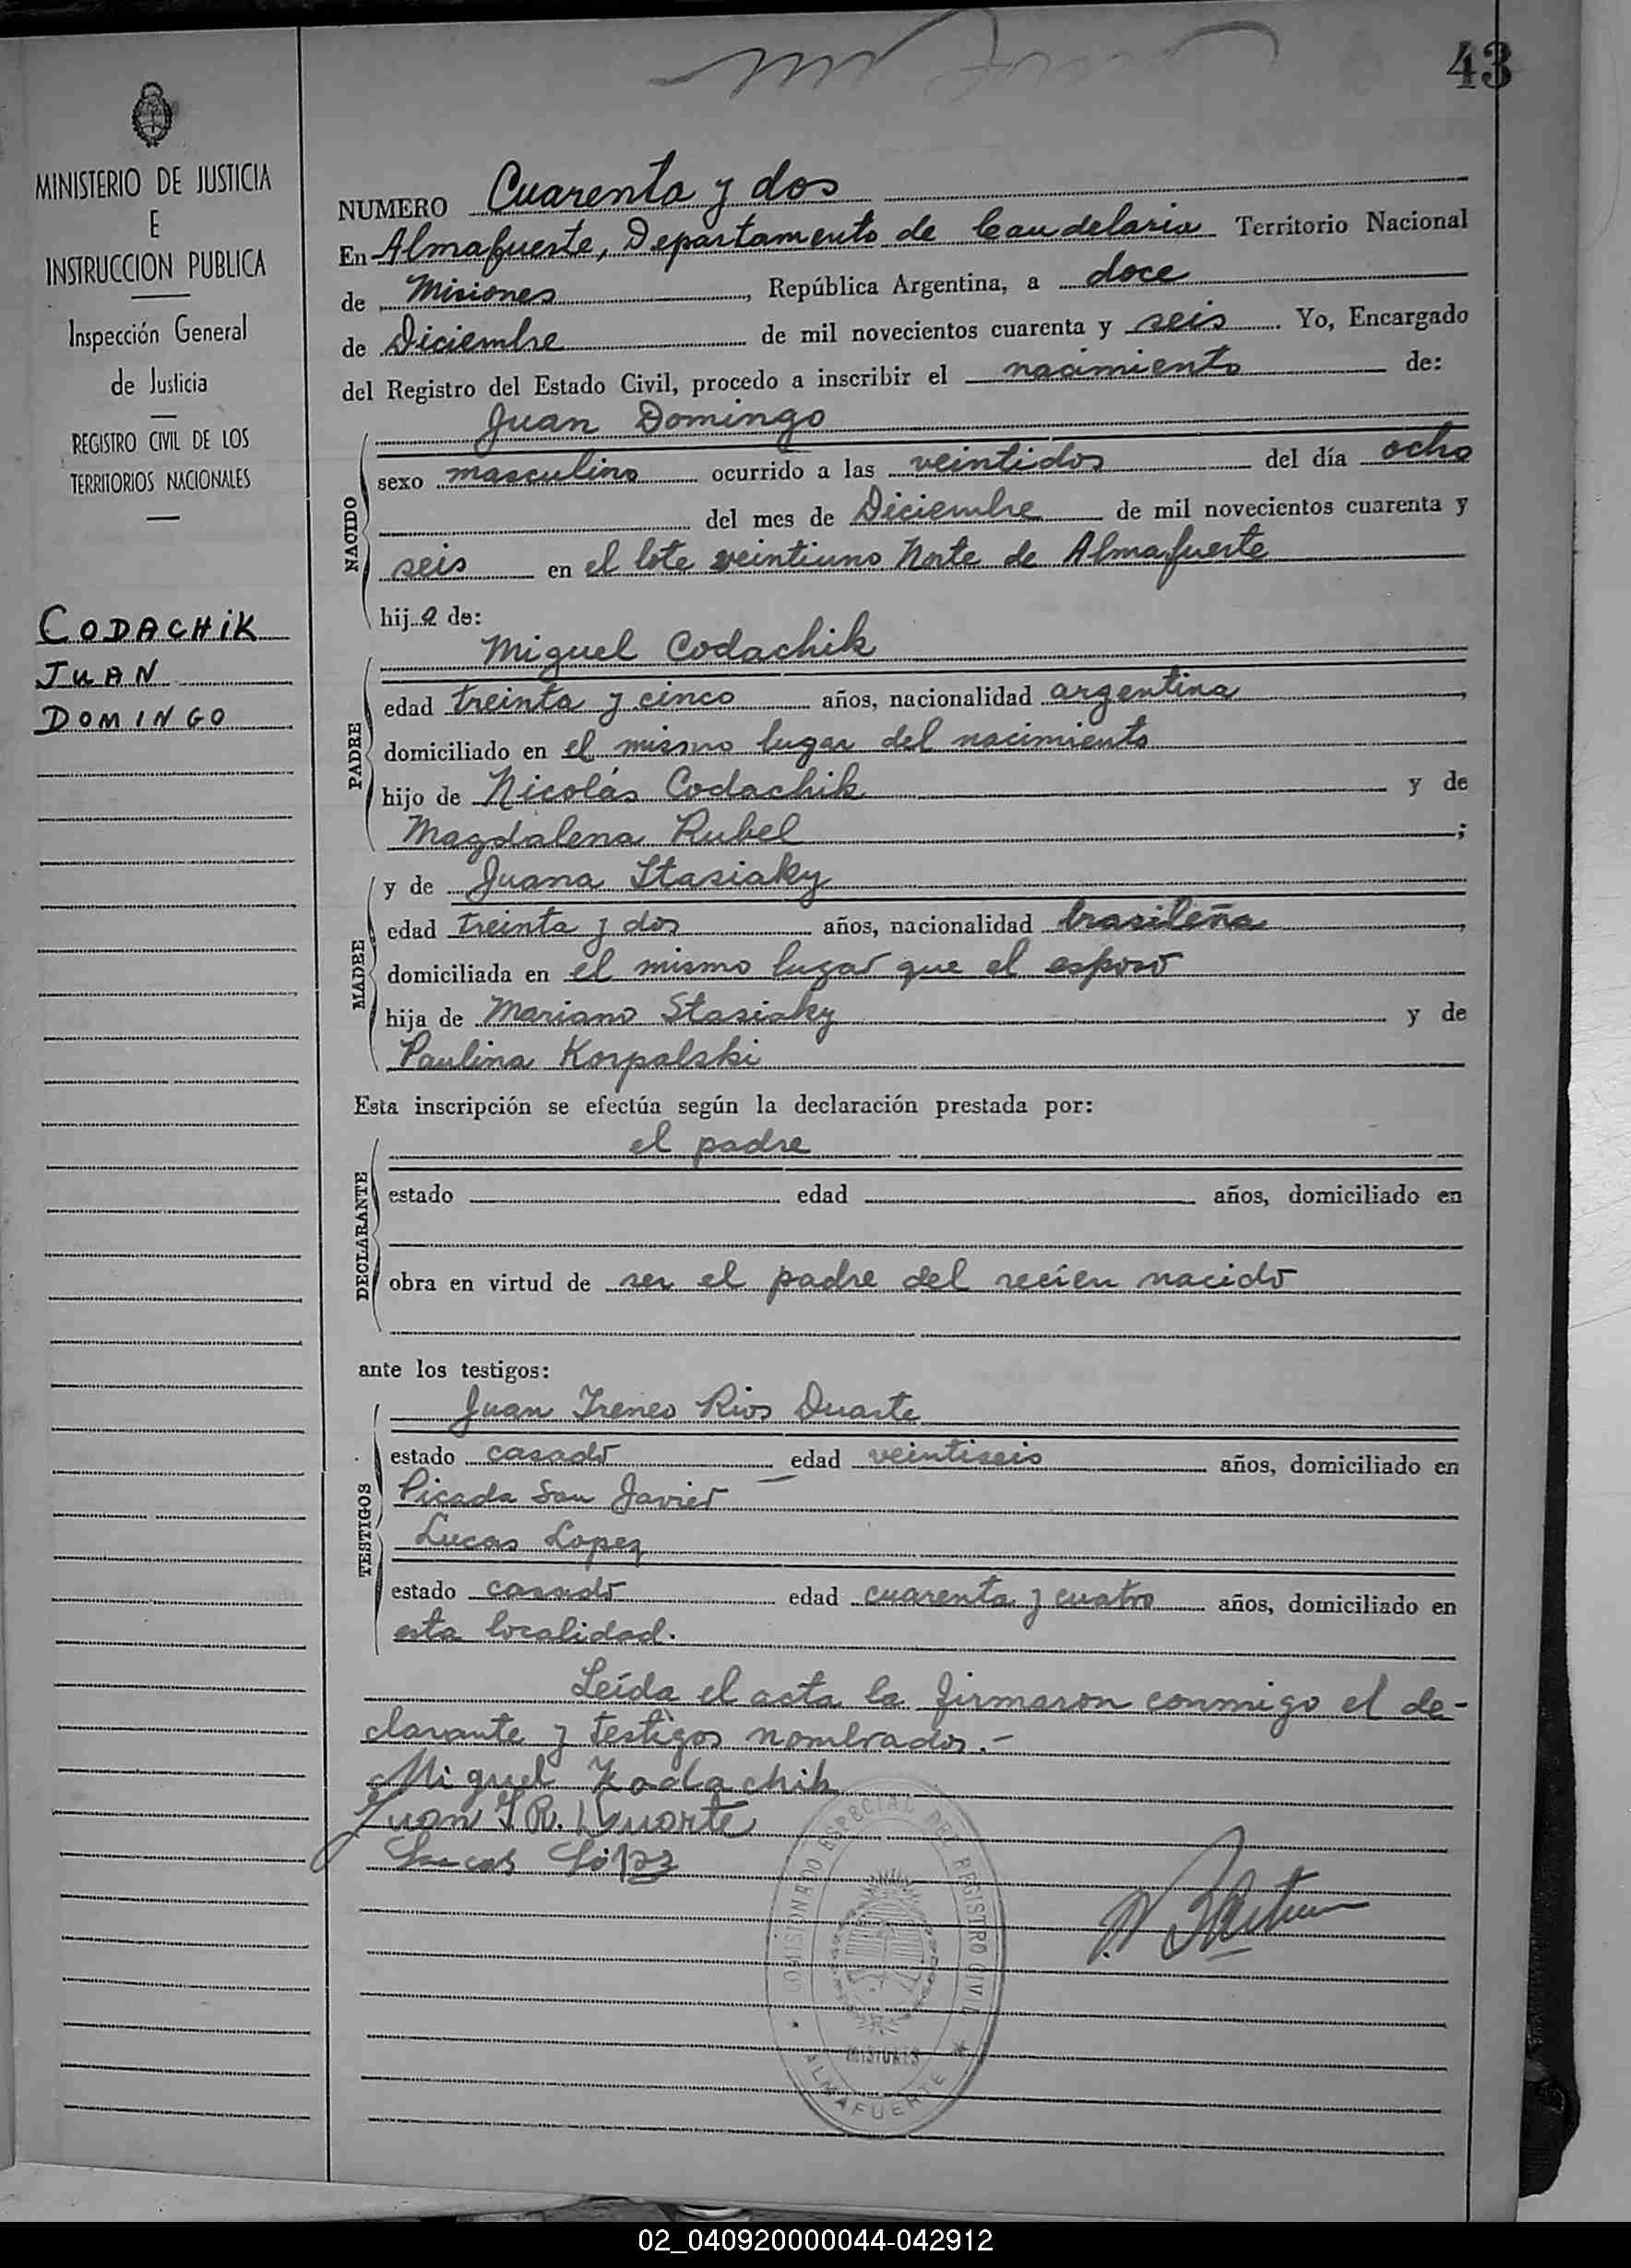 43
MINISTERIO DE JUSTICIA
E
INSTRUCCION PUBLICA
Inspección General
de Justicia
REGISTRO CIVIL DE LOS
TERRITORIOS NACIONALES
CODACHIK
JUAN
DOMINGO
NUMERO Cuarenta y dos
En Almafuerte, Departamento de Candelaria Territorio Nacional
de Misiones, República Argentina, a doce
de Diciembre de mil novecientos cuarenta y seis. Yo, Encargado
del Registro del Estado Civil, procedo a inscribir el nacimiento de:
Juan Domingo
NACIDO
sexo masculino ocurrido a las veintidos del día ocho
del mes de Diciembre de mil novecientos cuarenta y
seis en el lote veintiuno Norte de Almafuerte
hijo de:
Miguel Codachik
PADRE
edad treinta y cinco años, nacionalidad argentina,
domiciliado en el mismo lugar del nacimiento
hijo de Nicolás Codachik y de
Magdalena Rubel;
y de Juana Stasiaky
MADRE
edad treinta y dos años, nacionalidad brasileña,
domiciliada en el mismo lugar que el esposo
hija de Mariano Stasiaky y de
Paulina Korpalski
Esta inscripción se efectúa según la declaración prestada por:
el padre
DECLARANTE
estado edad años, domiciliado en
obra en virtud de ser el padre del recien nacido
ante los testigos:
Juan Ireneo Rios Duarte
TESTIGOS
estado casado edad veintiseis años, domiciliado en
Picada San Javier
Lucas Lopez
estado casado edad cuarenta y cuatro años, domiciliado en
esta localidad.
Leída el acta la firmaron conmigo el de-
clarante y testigos nombrados.-
Miguel Kodachik
Juan I R. Duarte
Lucas López
COMISIONADO ESPECIAL DEL REGISTRO CIVIL
MISIONES
ALMAFUERTE
02_040920000044-042912